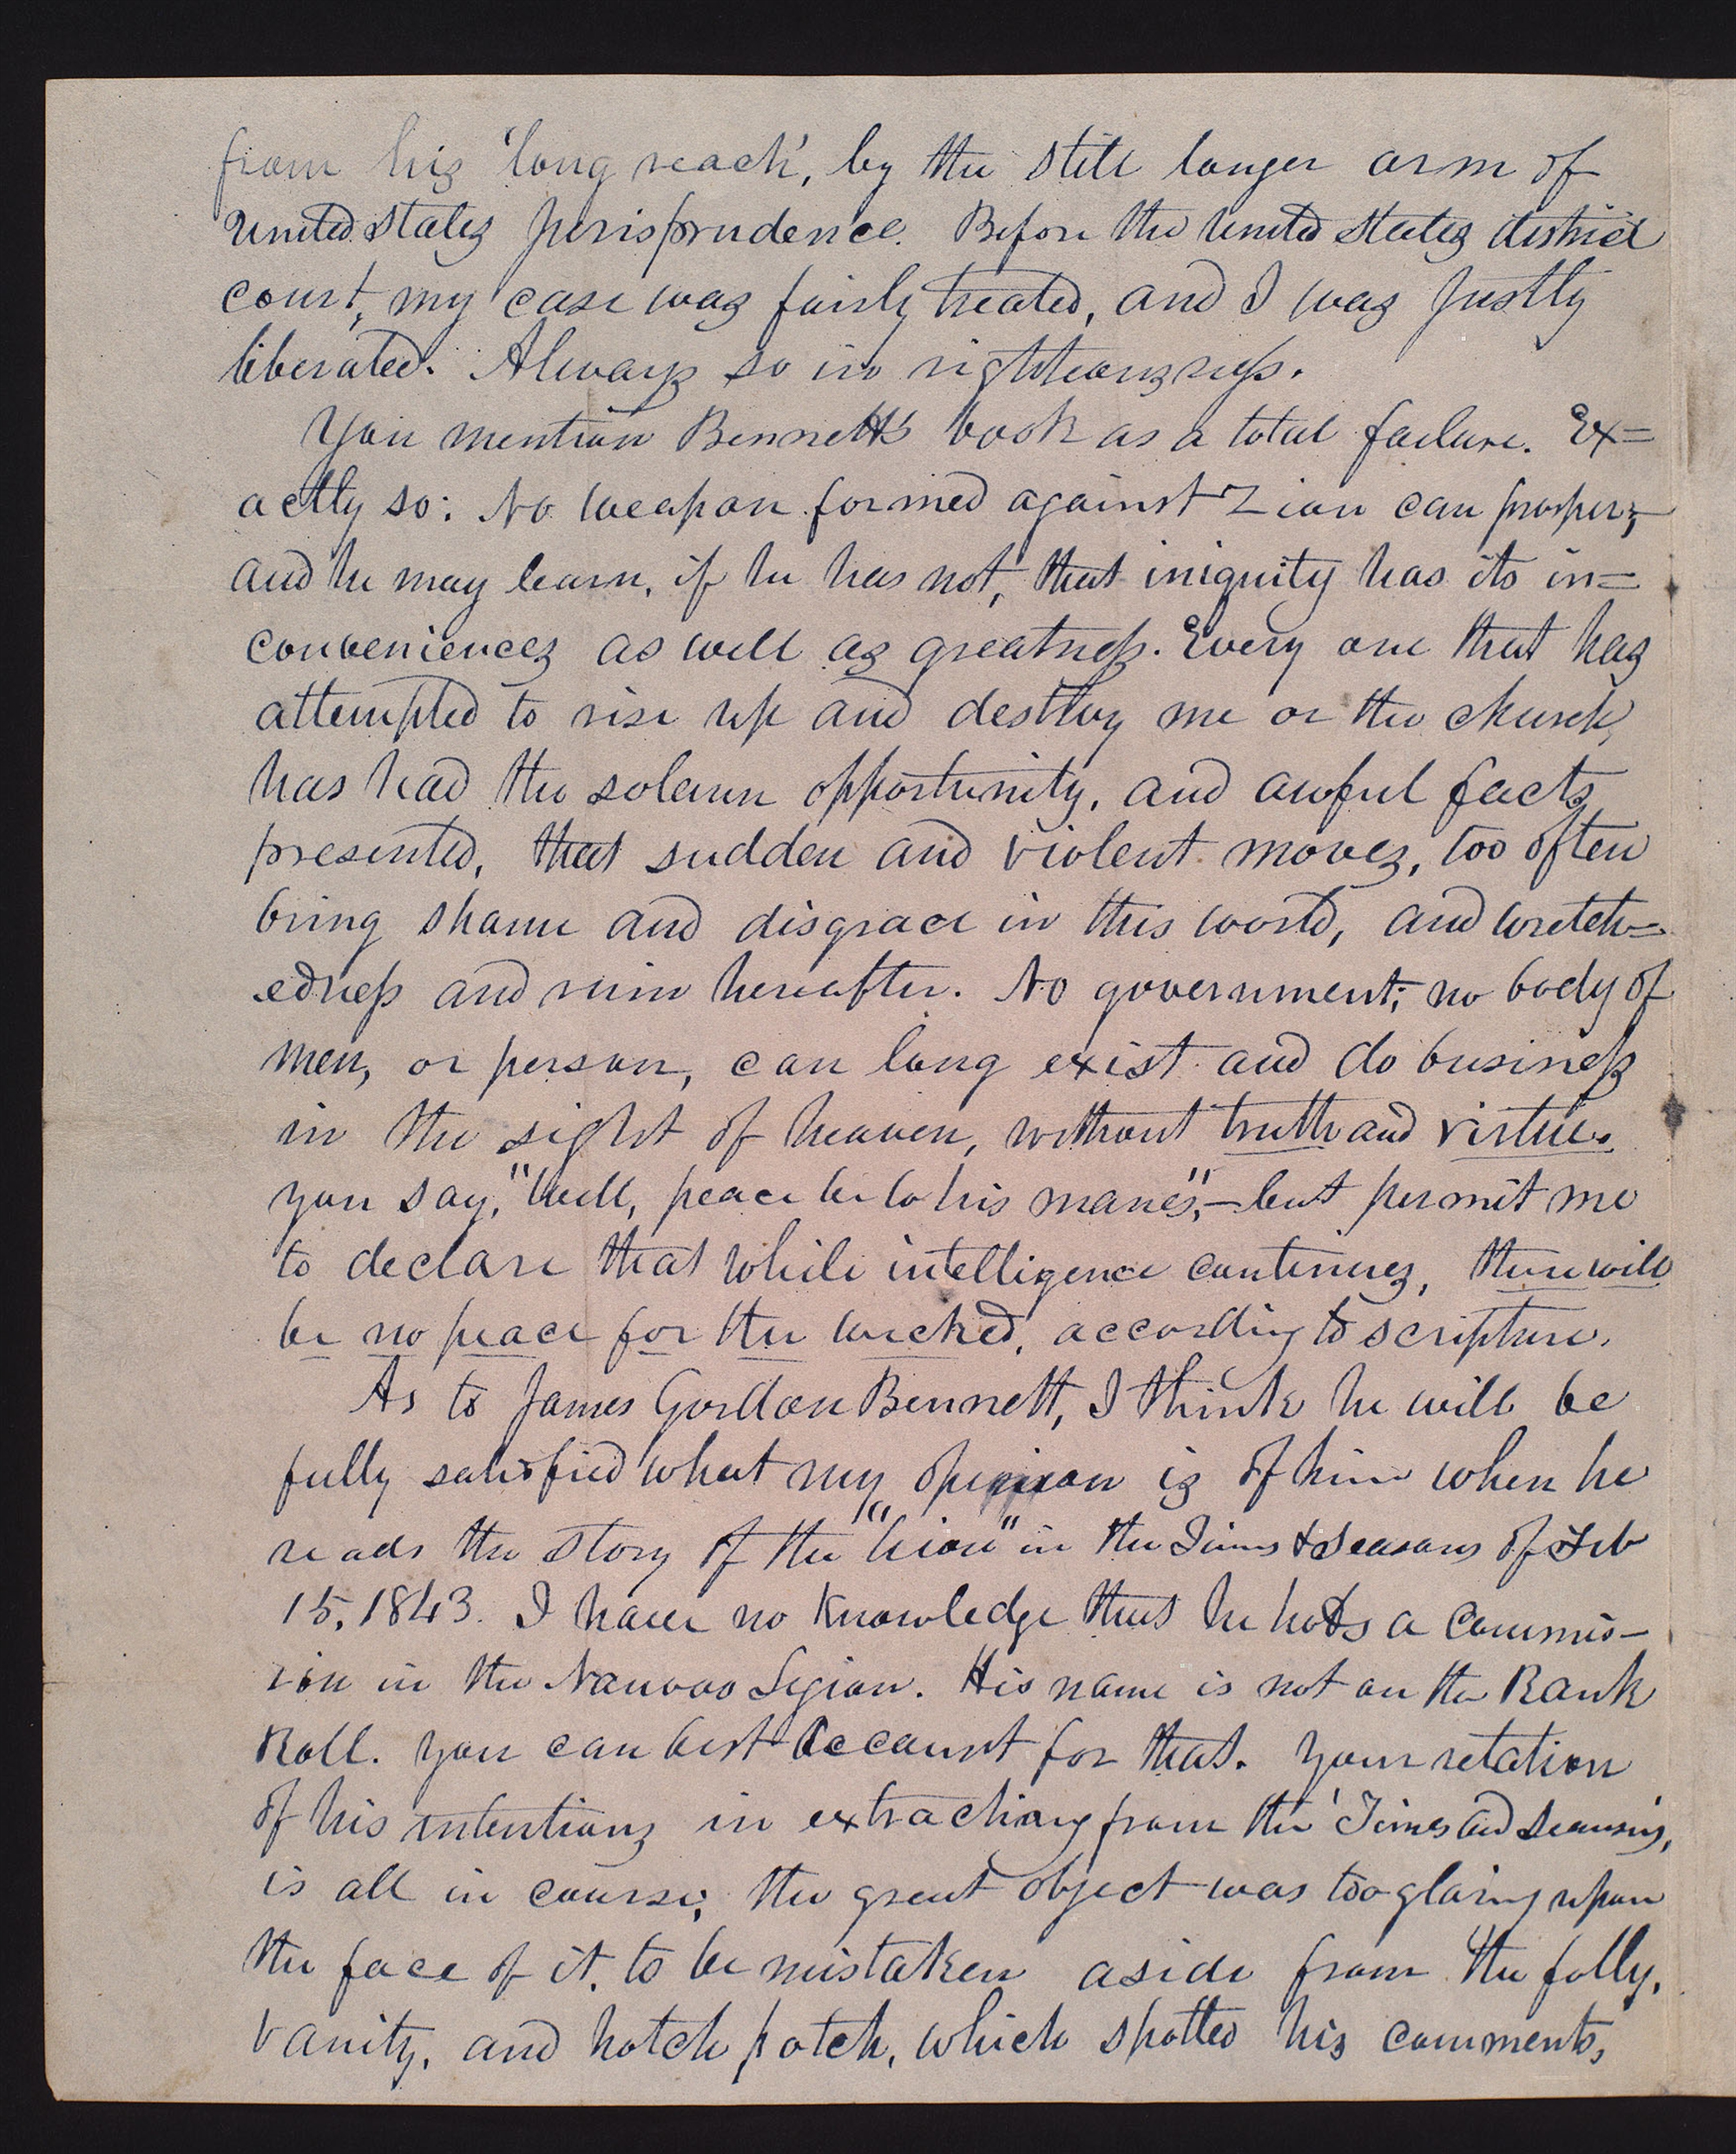 from his 'long reach', by the still longer arm of
United States jurisprudence. Before the United States district
court, my case was fairly treated, and I was justly
liberated. Always so in righteousness.
You mention Bennett's book as a total failure. Ex=
actly so: No weapon formed against Zion can prosper;
and he may learn, if he has not, that iniquity has its in=
conveniences as well as greatness. Every one that has
attempted to rise up and destroy me or the church,
has had the solemn opportunity, and awful facts
presented, that sudden and violent moves, too often
bring shame and disgrace in this world, and wretch=
edness and ruin hereafter. No government; no body of
men, or person, can long exist and do business
in the sight of heaven, without truth and virtue.
you say, "well, peace be to his manes",—but permit me
to declare that while intelligence continues, there will
be no peace for the wicked, according to scripture.
As to James Gordon Bennett, I think he will be
fully satisfied what my opinion is of him when he
reads the story of the "Lion" in the Times & Seasons of Feb
15, 1843. I have no knowledge that he holds a commis-
ion in the Nauvoo Legion. His name is not on the Rank
Roll. you can best account for that. Your retation
of his intentions in extracting from the 'Times and Seasons,'
is all in course; the great object was too glaring upon
the face of it, to be mistaken aside from the folly,
vanity, and hotch potch, which spotted his comments,